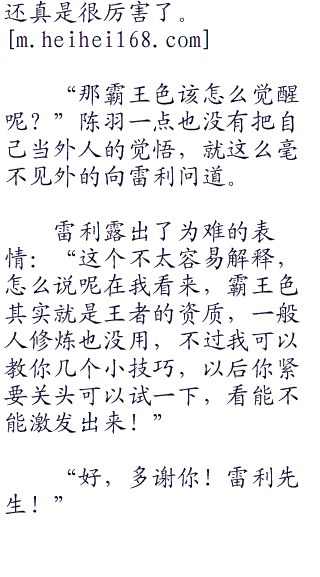 还真是很厉害了。
[m.heihei168.com]
“那霸王色该怎么觉醒
呢？”陈羽一点也没有把自
己当外人的觉悟，就这么毫
不见外的向雷利问道。
雷利露出了为难的表
情：“这个不太容易解释，
怎么说呢在我看来，霸王色
其实就是王者的资质，一般
人修炼也没用，不过我可以
教你几个小技巧，以后你紧
要关头可以试一下，看能不
能激发出来！”
“好，多谢你！雷利先
生！”